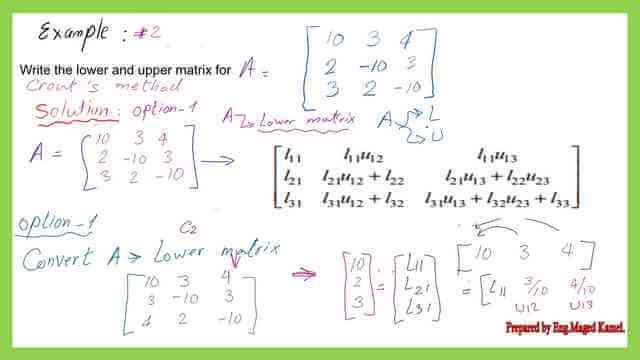 Example : #2
Write the lower and upper matrix for A =
10 3 4
2 -10 3
3 2 -10
Crout's method
Solution: option-1
A → Lower matrix
A → L
→ U
A = 10 3 4
2 -10 3
3 2 -10
→
l11 l11u12 l11u13
l21 l21u12 + l22 l21u13 + l22u23
l31 l31u12 + l32 l31u13 + l32u23 + l33
option-1
C2
Convert A → Lower matrix
10 3 4
3 -10 3
4 2 -10
⇒
10
2
3
=
L11
L21
L31
[10 3 4]
= [L11 3/10 4/10
U12 U13
Prepared by Eng.Maged Kamel.